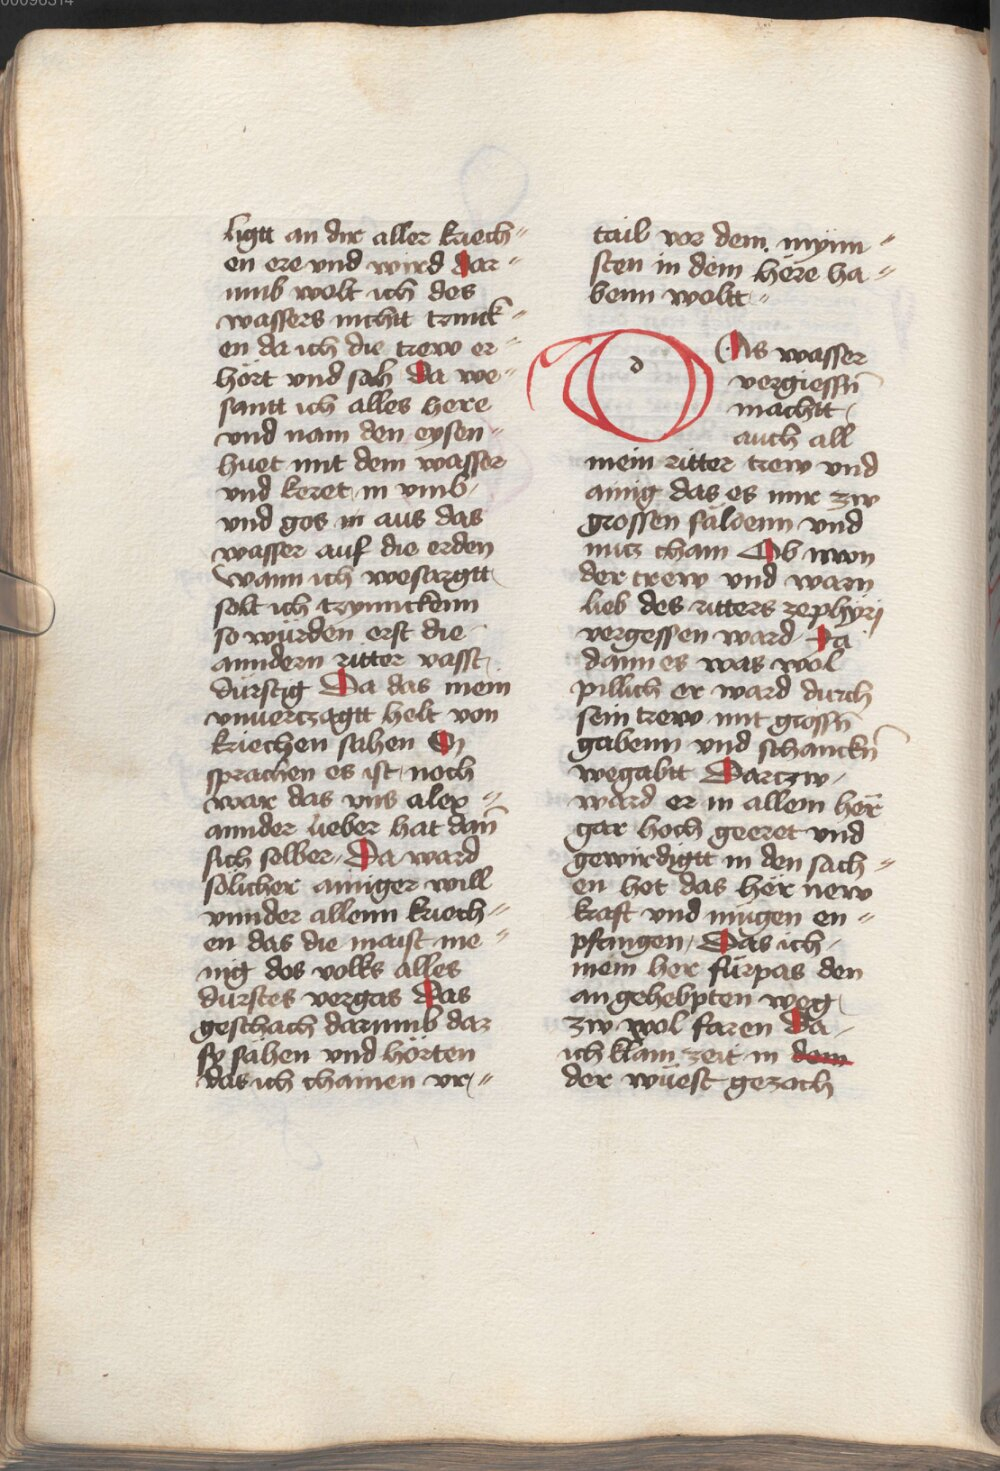 00096314
ligtt an dir aller kriech„
en ere vnd wird dar„
umb wolt ich des
wassers nichtt trinck„
en da ich die trew er„
hört vnd sah Da we„
santt ich alles here
vnd nam den eysen„
huet mit dem wasser
vnd keret in vmb,
vnd gos in aus das
wasser auf die erden
Wann ich wesargtt
solt ich trynnckenn
so würden erst die
anndern ritter vasst
dürstig Da das mein
vnuerczagtt helt von
kriechen sahen Sy
sprachen es ist noch
war das vns alex„
annder lieber hat dan̄
sich selber Da ward
sölicher ainiger will
vnnder allenn kriech„
en das die maist me„
nig des volks alles
durstes vergas Das
geschach darumb daz
sy sahen vnd hörten
das ich chainen vr„
tail vor dem mynn„
sten in dem here ha„
benn woltt„
d
As wasser
vergiessn̄
machtt
auch all
mein ritter trew vnd
ainig das es mir zw
grossen säldenn vnd
nucz cham Ob nwn
der trew vnd warn
lieb des ritters zephyri
vergessen ward Da
dann es was wol
pillich er ward durch
sein trew mit grossn̄
gabenn vnd schanckn̄
wegabtt Darczw,
ward er in allem her̄
gar hoch geeret vnd
gewirdigtt in den sach„
en het das hör new
kraft vnd mügen en„
pfangen Das ich
mein her fürpas den
angehebpten weg
zw wol faren Da
ich klain zeit in dem
der wüest gezach